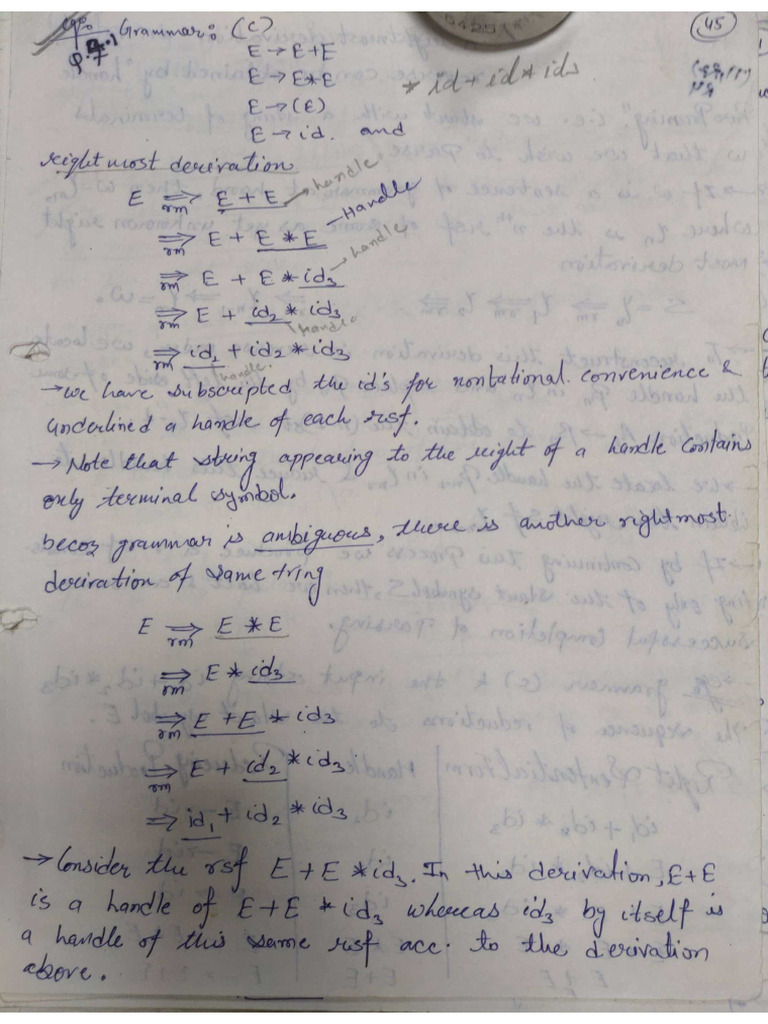 Grammar: (C)
45
E → E+E
E → E*E
* id + id * id3
E → (E)
E → id. and
right most derivation
E ⇒rm E + E → handle
⇒rm E + E * E - Handle
⇒rm E + E * id3 → handle
⇒rm E + id2 * id3
handle
⇒rm id1 + id2 * id3
handle.
→ we have subscripted the id's for nontational. convenience &
underlined a handle of each rsf.
→ Note that string appearing to the right of a handle contains
only terminal symbol.
becoz grammar is ambiguous, there is another rightmost.
derivation of same tring
E ⇒rm E * E
⇒rm E * id3
⇒rm E + E * id3
⇒rm E + id2 * id3
⇒ id1 + id2 * id3
→ Consider the rsf E + E * id3. In this derivation, E+E
is a handle of E+E * id3 whereas id3 by itself is
a handle of this same rsf acc. to the derivation
above.